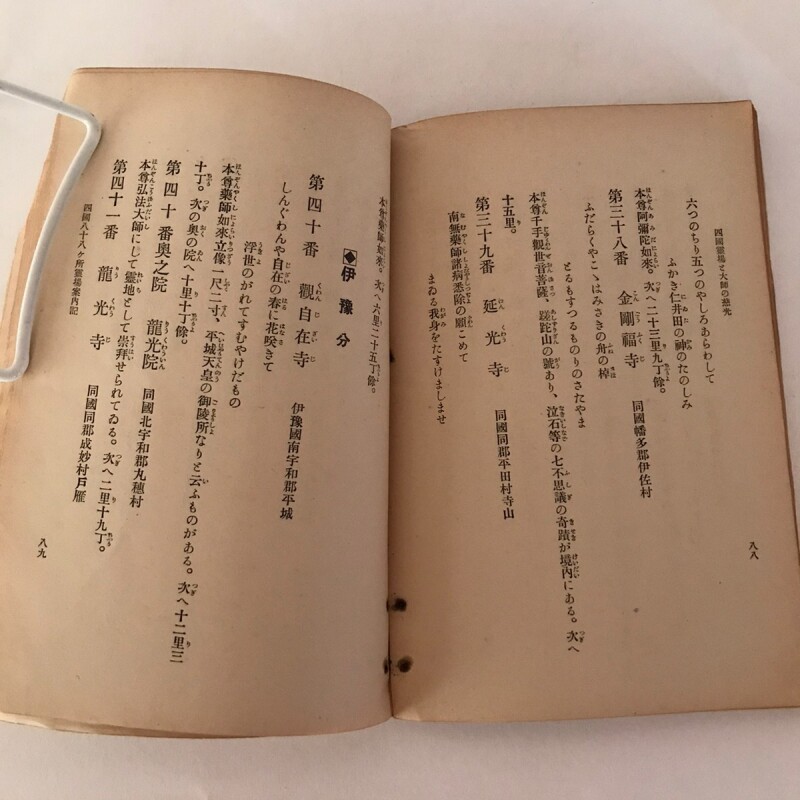 四國靈場と大師の慈光
六つのちり五つのやしろあらわして
ふかき仁井田の神のたのしみ
本尊阿彌陀如來。次へ二十三里九丁餘。
第三十八番 金剛福寺 同國幡多郡伊佐村
ふだらくやこゝはみさきの舟の棹
とるもすつるものりのさたやま
本尊千手觀世音菩薩、蹉跎山の號あり、泣石等の七不思議の奇蹟が境內にある。次へ
十五里。
第三十九番 延光寺 同國同郡平田村寺山
南無藥師諸病悉除の願こめて
まゐる我身をたすけましませ
八八
本尊藥師如來。次へ六里二十五丁餘。
◆伊豫分
第四十番 觀自在寺 伊豫國南宇和郡平城
しんぐわんや自在の春に花咲きて
浮世のがれてすむやけだもの
本尊藥師如來立像一尺二寸、平城天皇の御陵所なりと云ふものがある。次へ十二里三
十丁。次の奧の院へ十里十丁餘。
第四十番奧之院 龍光院 同國北宇和郡丸穗村
本尊弘法大師にして靈地として崇拜せられてゐる。次へ二里十九丁。
第四十一番 龍光寺 同國同郡成妙村戸雁
四國八十八ヶ所靈場案內記
八九